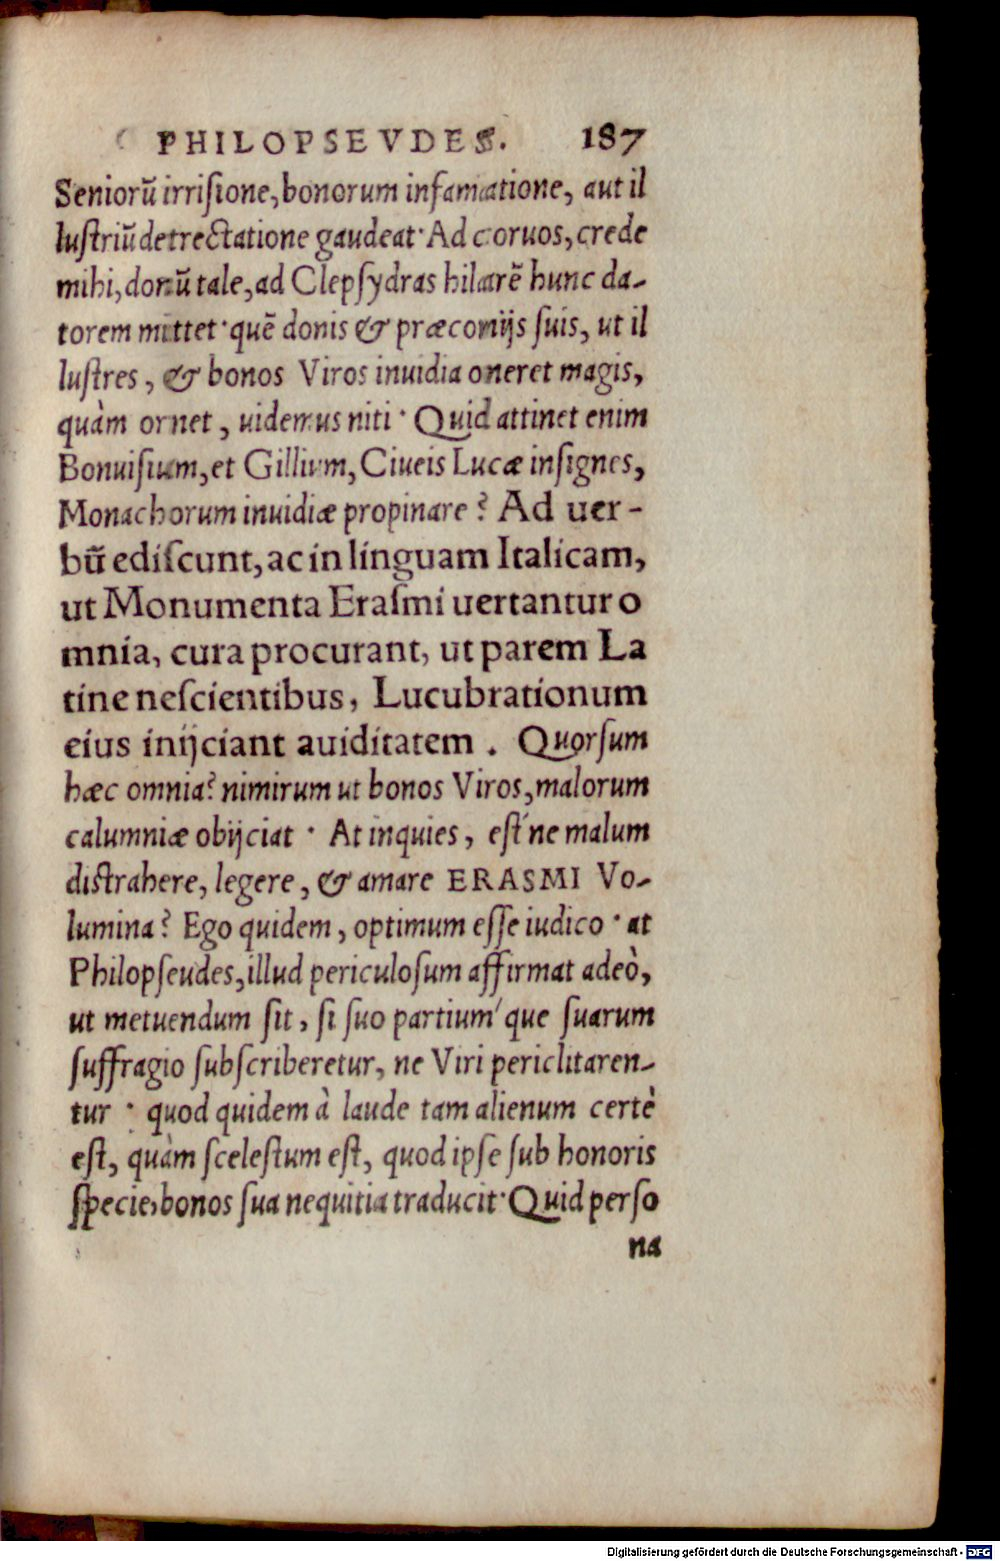 PHILOPSEVDES. 187
Seniorū irrisione, bonorum infamatione, aut il
lustriū detrectatione gaudeat· Ad coruos, crede
mihi, donū tale, ad Clepsydras hilarē hunc da-
torem mittet· quē donis & præconijs suis, ut il
lustres, & bonos Viros inuidia oneret magis,
quàm ornet, uidemus niti· Quid attinet enim
Bonuisium, et Gillium, Ciueis Lucæ insignes,
Monachorum inuidiæ propinare? Ad uer-
bū ediscunt, ac in linguam Italicam,
ut Monumenta Erasmi uertantur o
mnia, cura procurant, ut parem La
tine nescientibus, Lucubrationum
eius inijciant auiditatem. Quorsum
hæc omnia? nimirum ut bonos Viros, malorum
calumniæ obijciat· At inquies, est'ne malum
distrahere, legere, & amare ERASMI Vo-
lumina? Ego quidem, optimum esse iudico· at
Philopseudes, illud periculosum affirmat adeò,
ut metuendum sit, si suo partium'que suarum
suffragio subscriberetur, ne Viri periclitaren-
tur· quod quidem à laude tam alienum certè
est, quàm scelestum est, quod ipse sub honoris
specie, bonos sua nequitia traducit· Quid perso
na
Digitalisierung gefördert durch die Deutsche Forschungsgemeinschaft - DFG